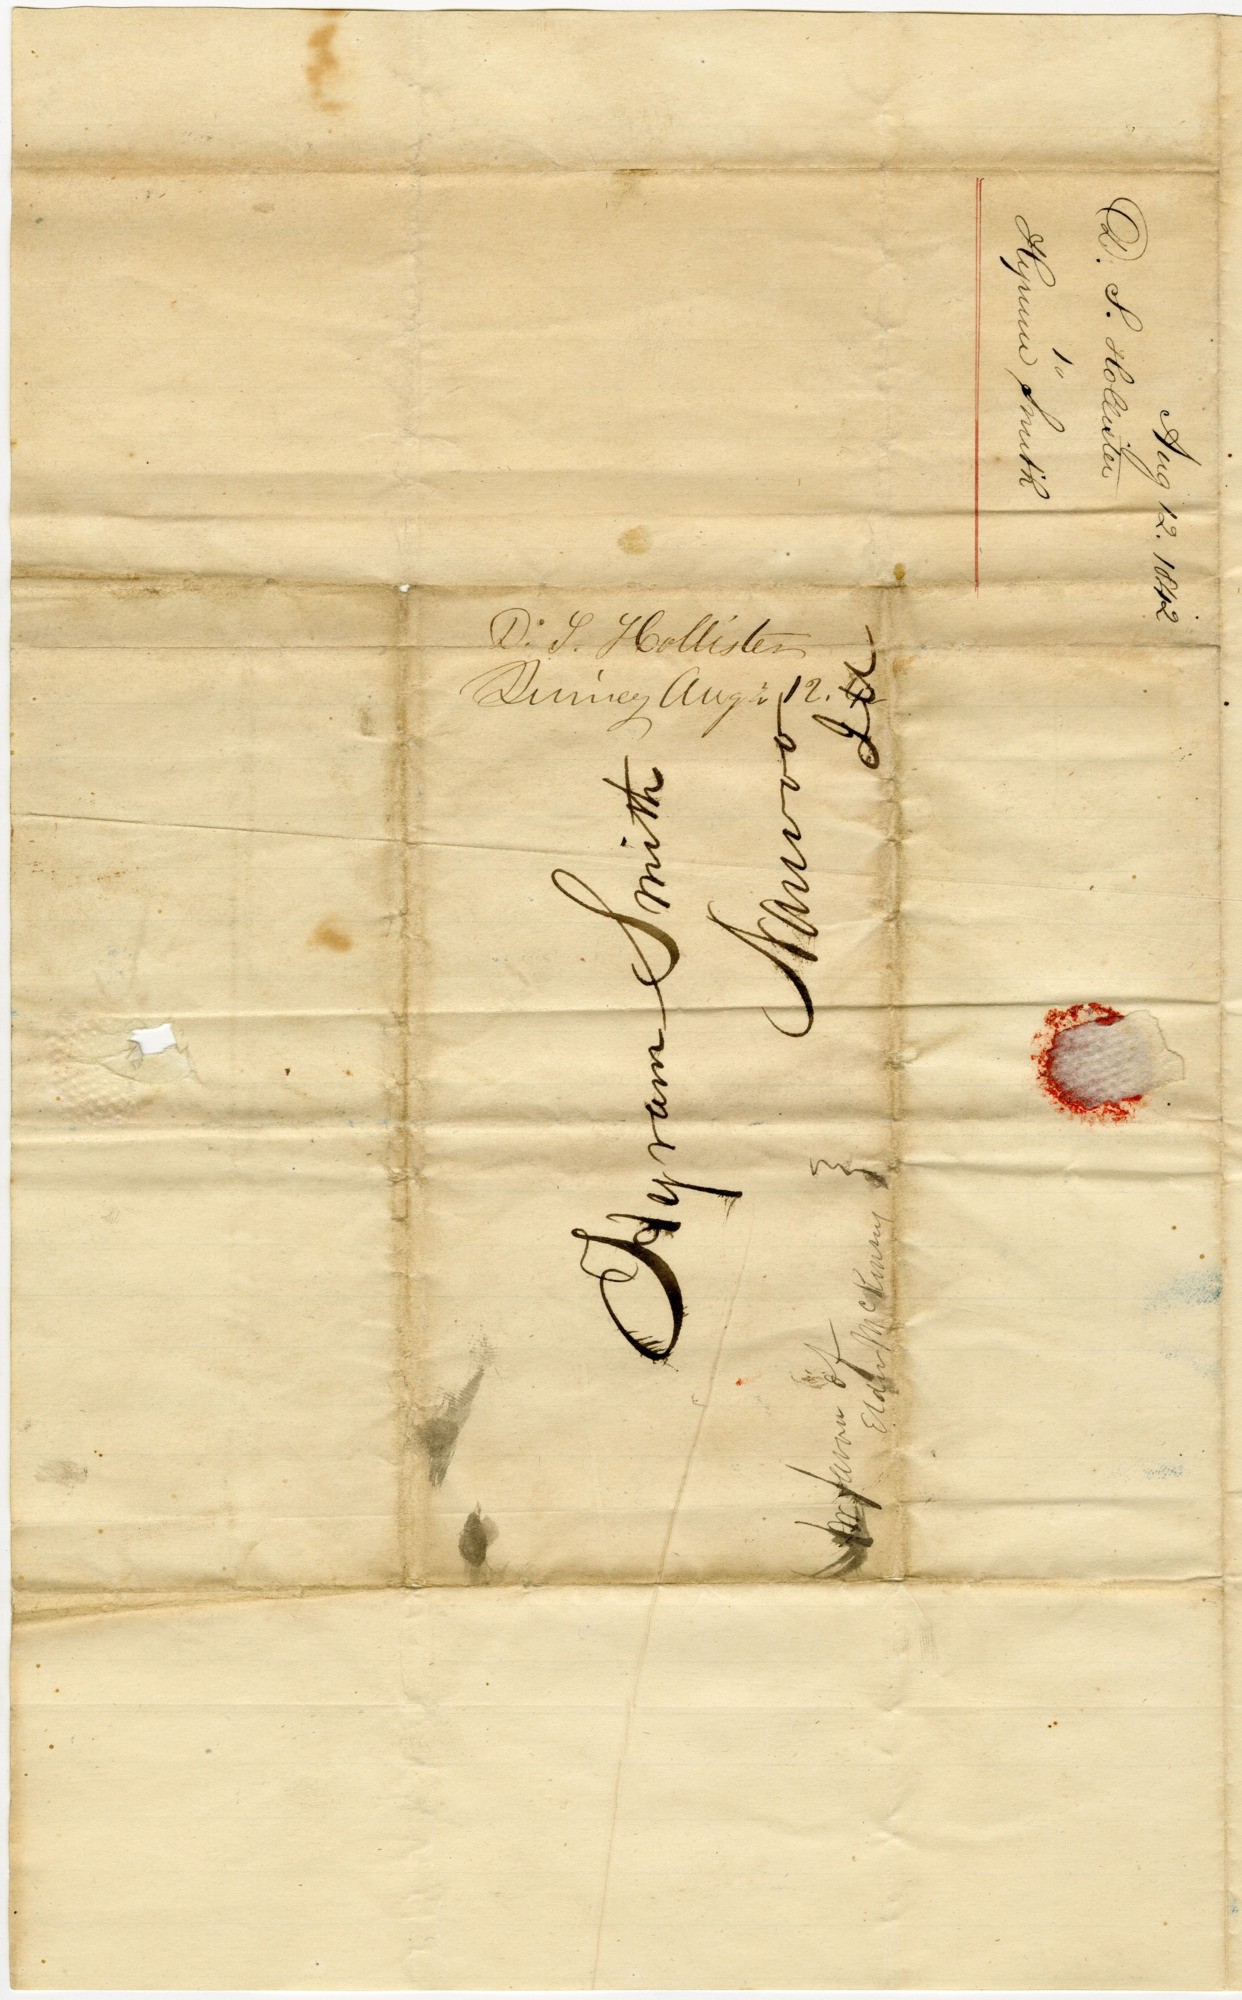 Aug 12. 1842
D. S. Hollister
to
Hyrum Smith
D. S. Hollister
Quincy Augt 12.
Hyram Smith
Nauvoo
Ill
favor of
Elder McKinny }